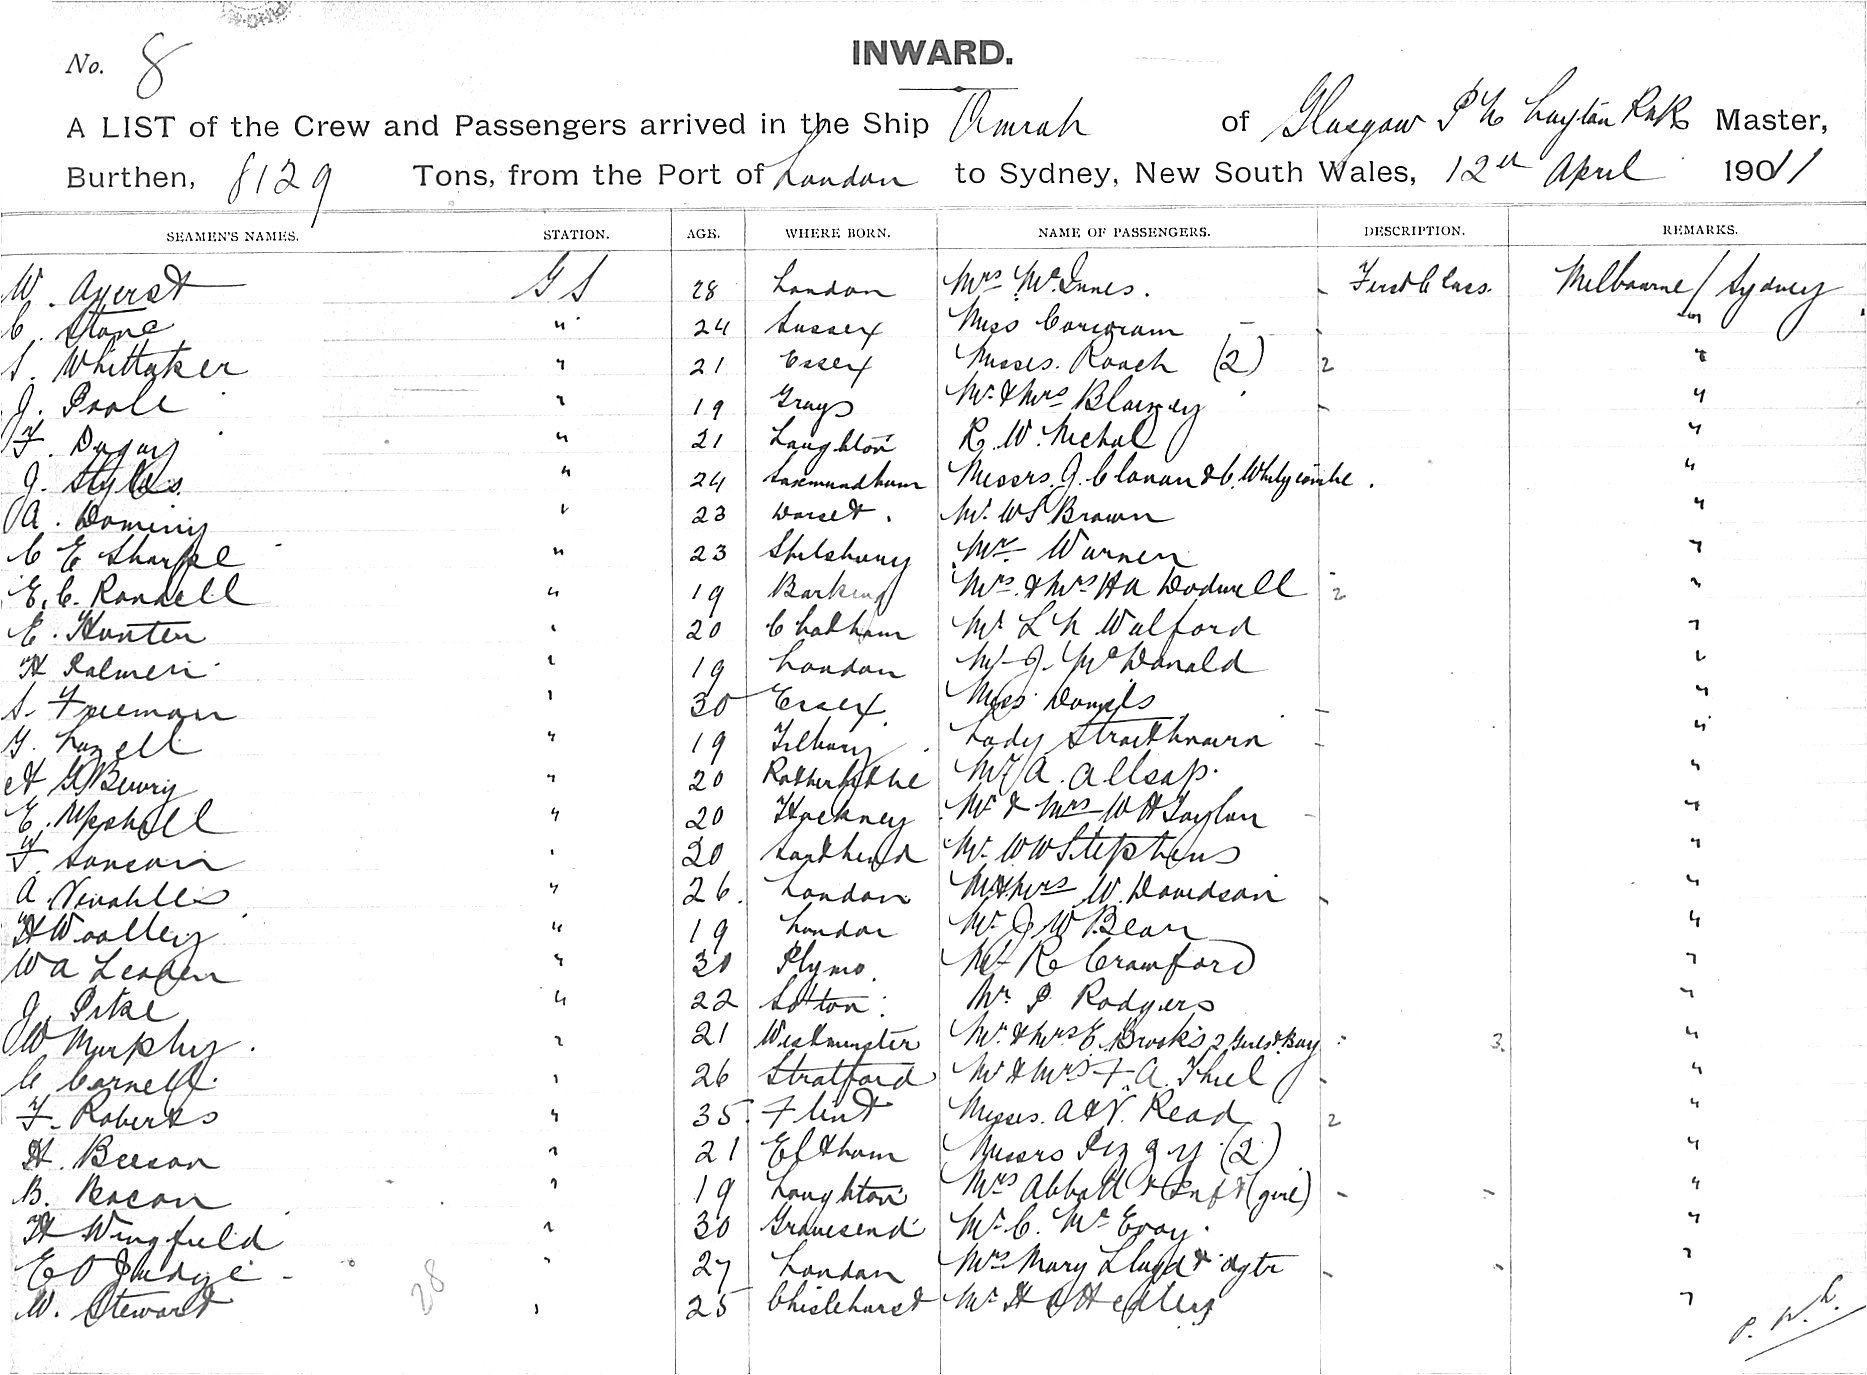 No. 8
INWARD.
A LIST of the Crew and Passengers arrived in the Ship Ormrah of Glasgow Layton RNR Master,
Burthen, 8129 Tons, from the Port of London to Sydney, New South Wales, 12th April 1901/1
SEAMEN'S NAMES. STATION. AGE. WHERE BORN. NAME OF PASSENGERS. DESCRIPTION. REMARKS.
W. Ayerst G S 28 London Mrs McInnes. First Class. Melbourne / Sydney
C. Stone " 24 Sussex Miss Corcoram "
S. Whittaker " 21 Essex Misses. Roach (2) 2 "
J. Poole " 19 Grays Mr & Mrs Blamey "
F. " 21 Loughton R. W. Nichol "
J. Styles " 24 Saxmundham Messrs. J. Clanan & C. Whitycombe. "
A. Dominy " 23 Dorset. Mr. W S Brown "
C E Sharpe " 23 Mr Warner "
E. C. Randell " 19 Barking Mrs & Mrs H A Dodwell 2 "
E. Hunter " 20 Chatham Mr L N Walford "
H Palmer " 19 London Mr J. McDonald "
S. Freeman " 30 Essex Miss Daniels "
G. Lazell " 19 Tilbury Lady Straithnairn "
" 20 Rotherhithe Mr A. Allsop. "
E. " 20 Hackney Mr & Mrs W H Taylor "
F. " 20 Southend Mr. W W Stephens "
A Venables " 26. London Mr & Mrs W. Davidson "
H Woolley " 19 London Mr. J W Bean "
W A " 30 Plymo. Mr R Crawford "
J. Pike " 22 Sutton. Mr P Rodgers "
W Murphy. " 21 Westminster Mr. & Mrs E. Brooks 2 Girls & Boy 3. "
C Carnell. " 26 Stratford Mr & Mrs F. A. Thiel "
F. Roberts " 35. Flint Misses. A & V. Read 2 "
H. Beeson " 21 Eltham Messrs (2) "
B. Bacon " 19 Loughton Mrs Abbott & Inft (girl) "
H Wingfield " 30 Gravesend Mr C. McEvoy. "
E O Judge " 27 London Mrs Mary Lloyd & dgtr "
W. Stewart " 25 Chislehurst Mr "
28